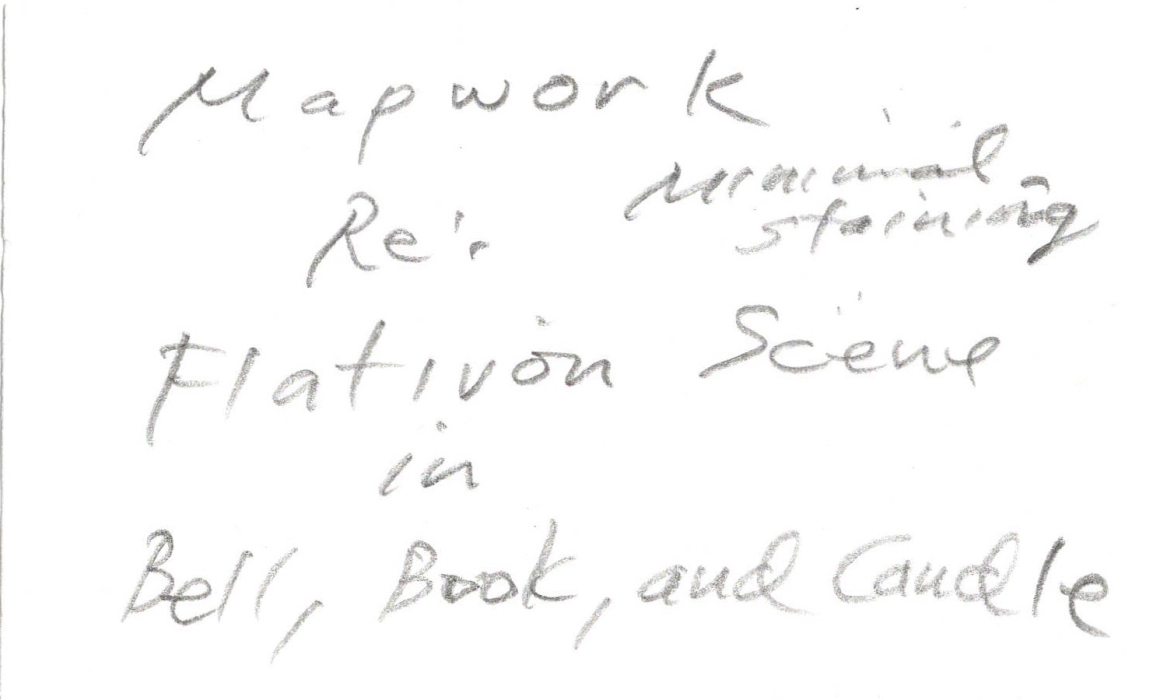 Mapwork
Minimal
staining
Re:
Flatiron Scene
in
Bell, Book, and Candle